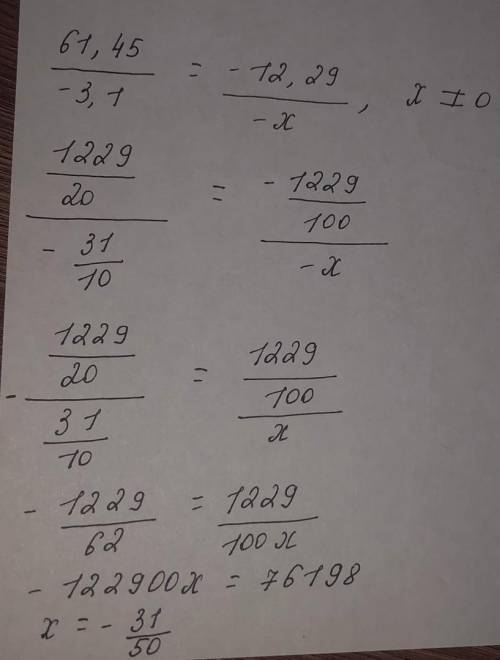 61,45 / -3,1 = -12,29 / -x , x ≠ 0
(1229/20) / (- 31/10) = (- 1229/100) / (-x)
- (1229/20) / (31/10) = (1229/100) / x
- 1229/62 = 1229/100x
- 122900x = 76198
x = - 31/50